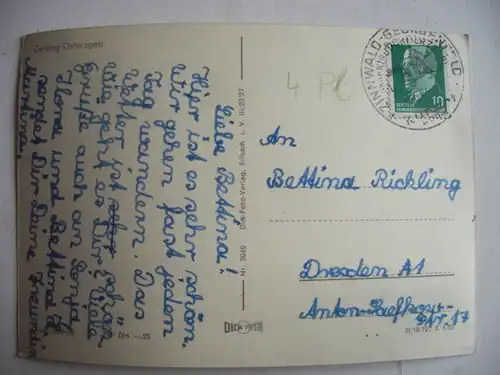 Geising Osterzgeb.
Liebe Bettina!
Hier ist es sehr schön.
Wir gehen fast jeden
Tag wandern. Das
Wetter ist sehr schön
Wie geht es Dir? Viele
Grüße auch an Gerta,
Ilona und Bettina B.
sendet Dir Deine Freundin
Martina.
Nr. 3949 Dick-Foto-Verlag, Erlbach i. V. III/23/27
DM -.25
DICK
4 Pf
ZINNWALD-GEORGENFELD
10
An
Bettina Richling
Dresden A1
Anton-Saefkow-
Str. 17